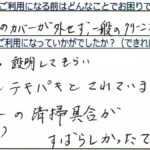 ご利用になる前はどんなことでお困りで
のカバーが外せず、一般のクリーン
ご利用になっていかがでしたか？（できれ
説明してもらい
テキパキとされていま
の清掃具合が
すばらしかったで